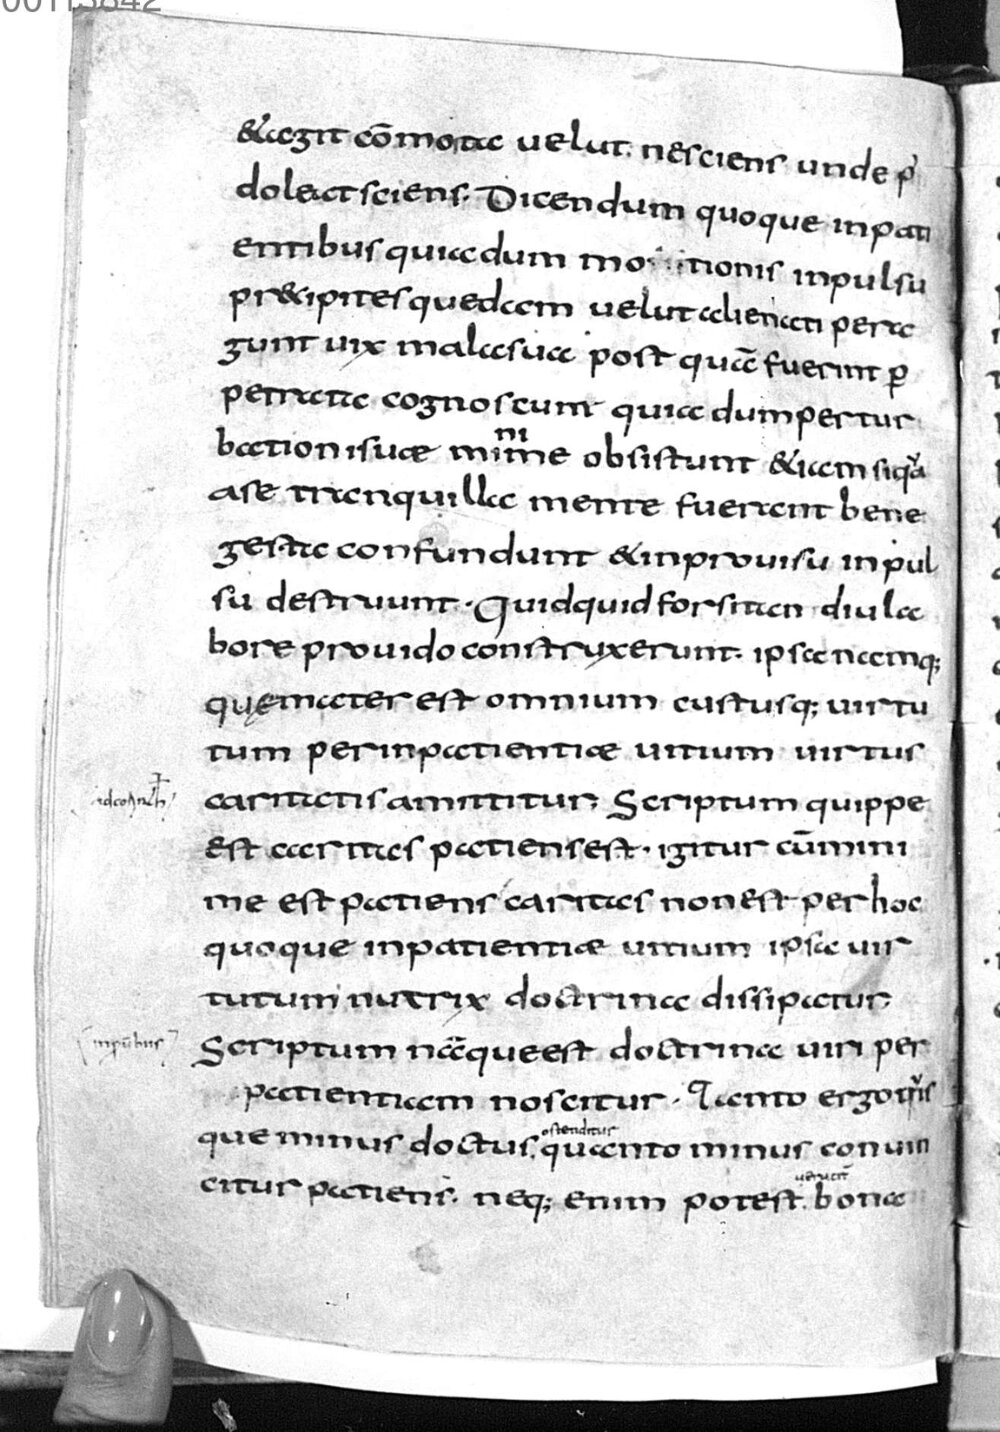 &agit cōmota uelut nesciens unde p̄
doleat sciens. Dicendum quoque inpati
entibus quia dum motionis inpulsu
pr&cipites quedam uelut alienati pera
gunt uix mala sua post quā fuerint p̲
petrata cognoscunt quia dum pertur
bationi suæ minime obsistunt &iam siqua
ni
ase tranquilla mente fuerant bene
gesta confundunt &inprouisu inpul
su destruunt. Quidquid forsitan diu la
bore prouido construxerunt. ipsa namq;
quę mater est omnium custusq; uirtu
tum per inpatientiæ uitium uirtus
caritatis amittitur; Scriptum quippe
est caritas patiens est. igitur cū mini
me est patiens caritas non est per hoc
quoque inpatientiæ uitium ipsa uir
tutum nutrix doctrina dissipatur
Scriptum nāque est doctrina uiri per
patientiam noscitur. Tanto ergo quis
que minus doctus quanto minus conuin
ostenditur
citur patiens. neq; enim potest bona